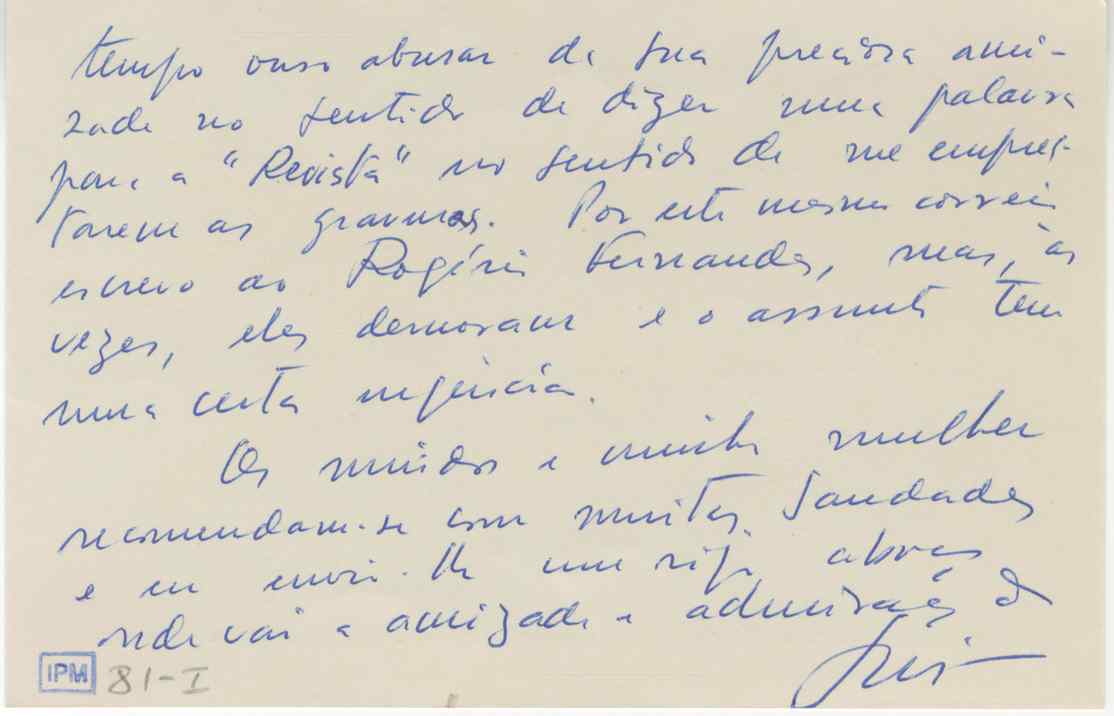 tempo ouso abusar da sua preciosa ami-
zade no sentido de dizer uma palavra
para a "Revista" no sentido de me empres-
tarem as gravuras. Por este mesmo correio
escrevo ao Rogério Fernandes, mas, às
vezes, eles demoram e o assunto tem
uma certa urgência.
Os miúdos e minha mulher
recomendam-se com muitas saudades
e eu envio-lhe um rijo abraço
onde vai a amizade e admiração do
IPM 81-I